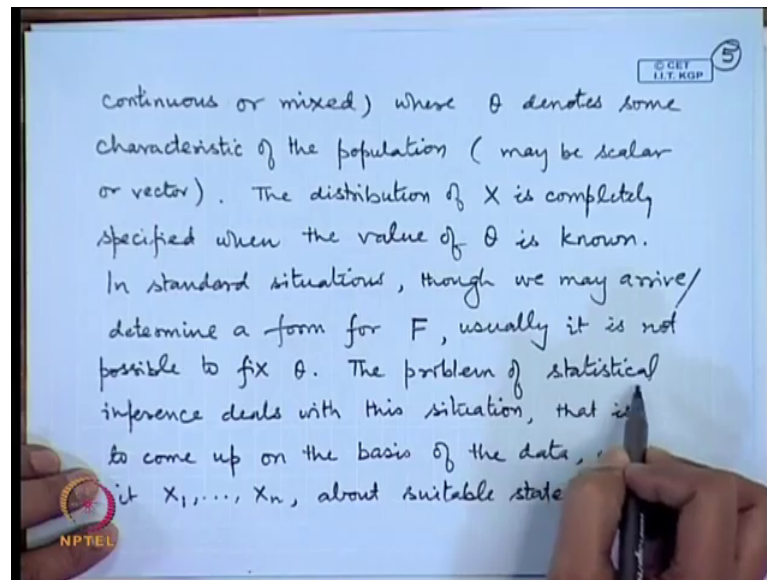 © CET
I.I.T. KGP
5
continuous or mixed) where θ denotes some
characteristic of the population ( may be scalar
or vector). The distribution of X is completely
specified when the value of θ is known.
In standard situations, though we may arrive/
determine a form for F, usually it is not
possible to fix θ. The problem of statistical
inference deals with this situation, that is
to come up on the basis of the data,
it X₁, ..., Xₙ, about suitable state
NPTEL